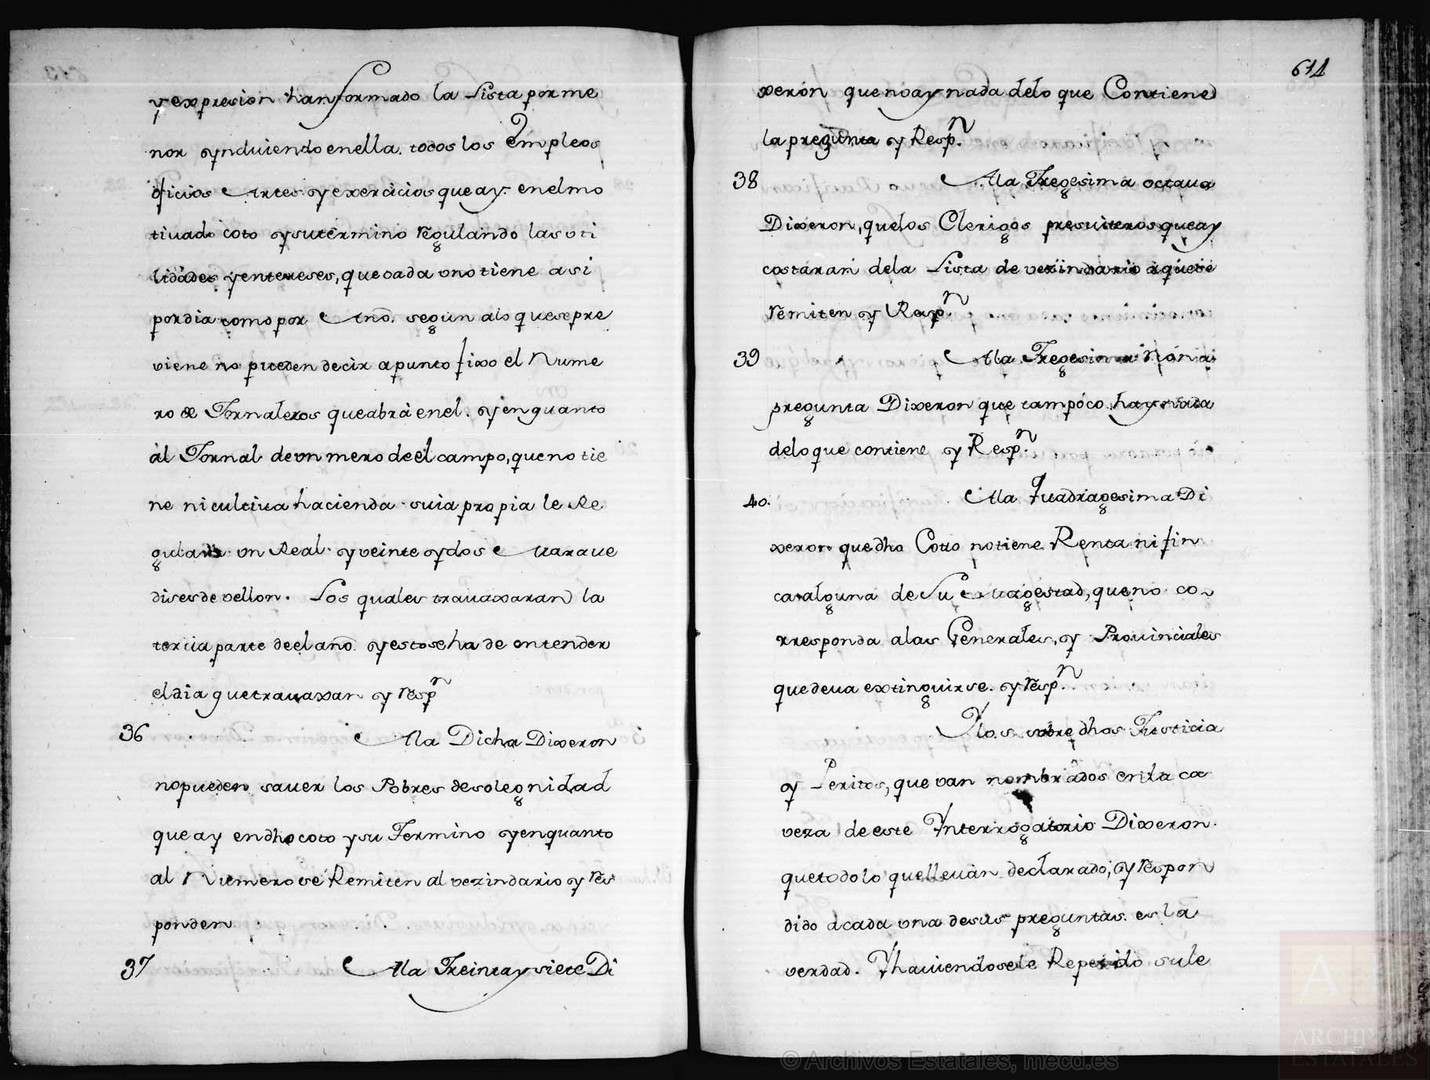 y expresion han formado la Lista por me
nor ynduiendo en ella. todos los Empleos
oficios Artes y exercicios que ay en el mo
tiuado coto y su termino regulando las vti
lidades y entereses, que cada vno tiene asi
por dia como por Año. segun a lo que se pre
viene no pueden decir a punto fixo el Nume
ro de Jornaleros que abrà en el. y en quanto
àl Jornal de vn mero de el campo, que no tie
ne ni cultiua hacienda suia propia le Re
gulan vn Real y veinte y dos Maraue
dises de vellon. Los quales trauaxaran la
tercia parte de el año. y esto se ha de entender
el dia que trauaxan y resp.n
36 A la Dicha Dixeron
no pueden sauer los Pobres de solegnidad
que ay en dho coto y su Termino y en quanto
al Numero se Remiten al vezindario y res
ponden
37 A la Treinta y siete Di
614
xerón que no ay nada de lo que Contiene
la pregunta y Resp.n
38 A la Tregesima octaua
Dixeron, que los Clerigos presuiteros que ay
costaran de la Lista de vezindario a que se
remiten y Resp.n
39 A la Tregesima Nona
pregunta Dixeron que tampóco hay nada
de lo que contiene y Resp.n
40. A la Quadragesima Di
xeron que dho Coto no tiene Renta ni fin
ca alguna de Su Magestad, que no co
rresponda a las Generales, y Prouinciales
que deua extinguirse. y resp.n
Yos sobre dhos Justicia
y Peritos, que van nombrados en la ca
veza de este Ynterrogatorio Dixeron.
que todo lo que lleuàn declarado, y respon
dido à cada vna de sus preguntas. es la
verdad. Y hauiendosele Repetido se le
© Archivos Estatales, mecd.es
ARCHIVOS
ESTATALES